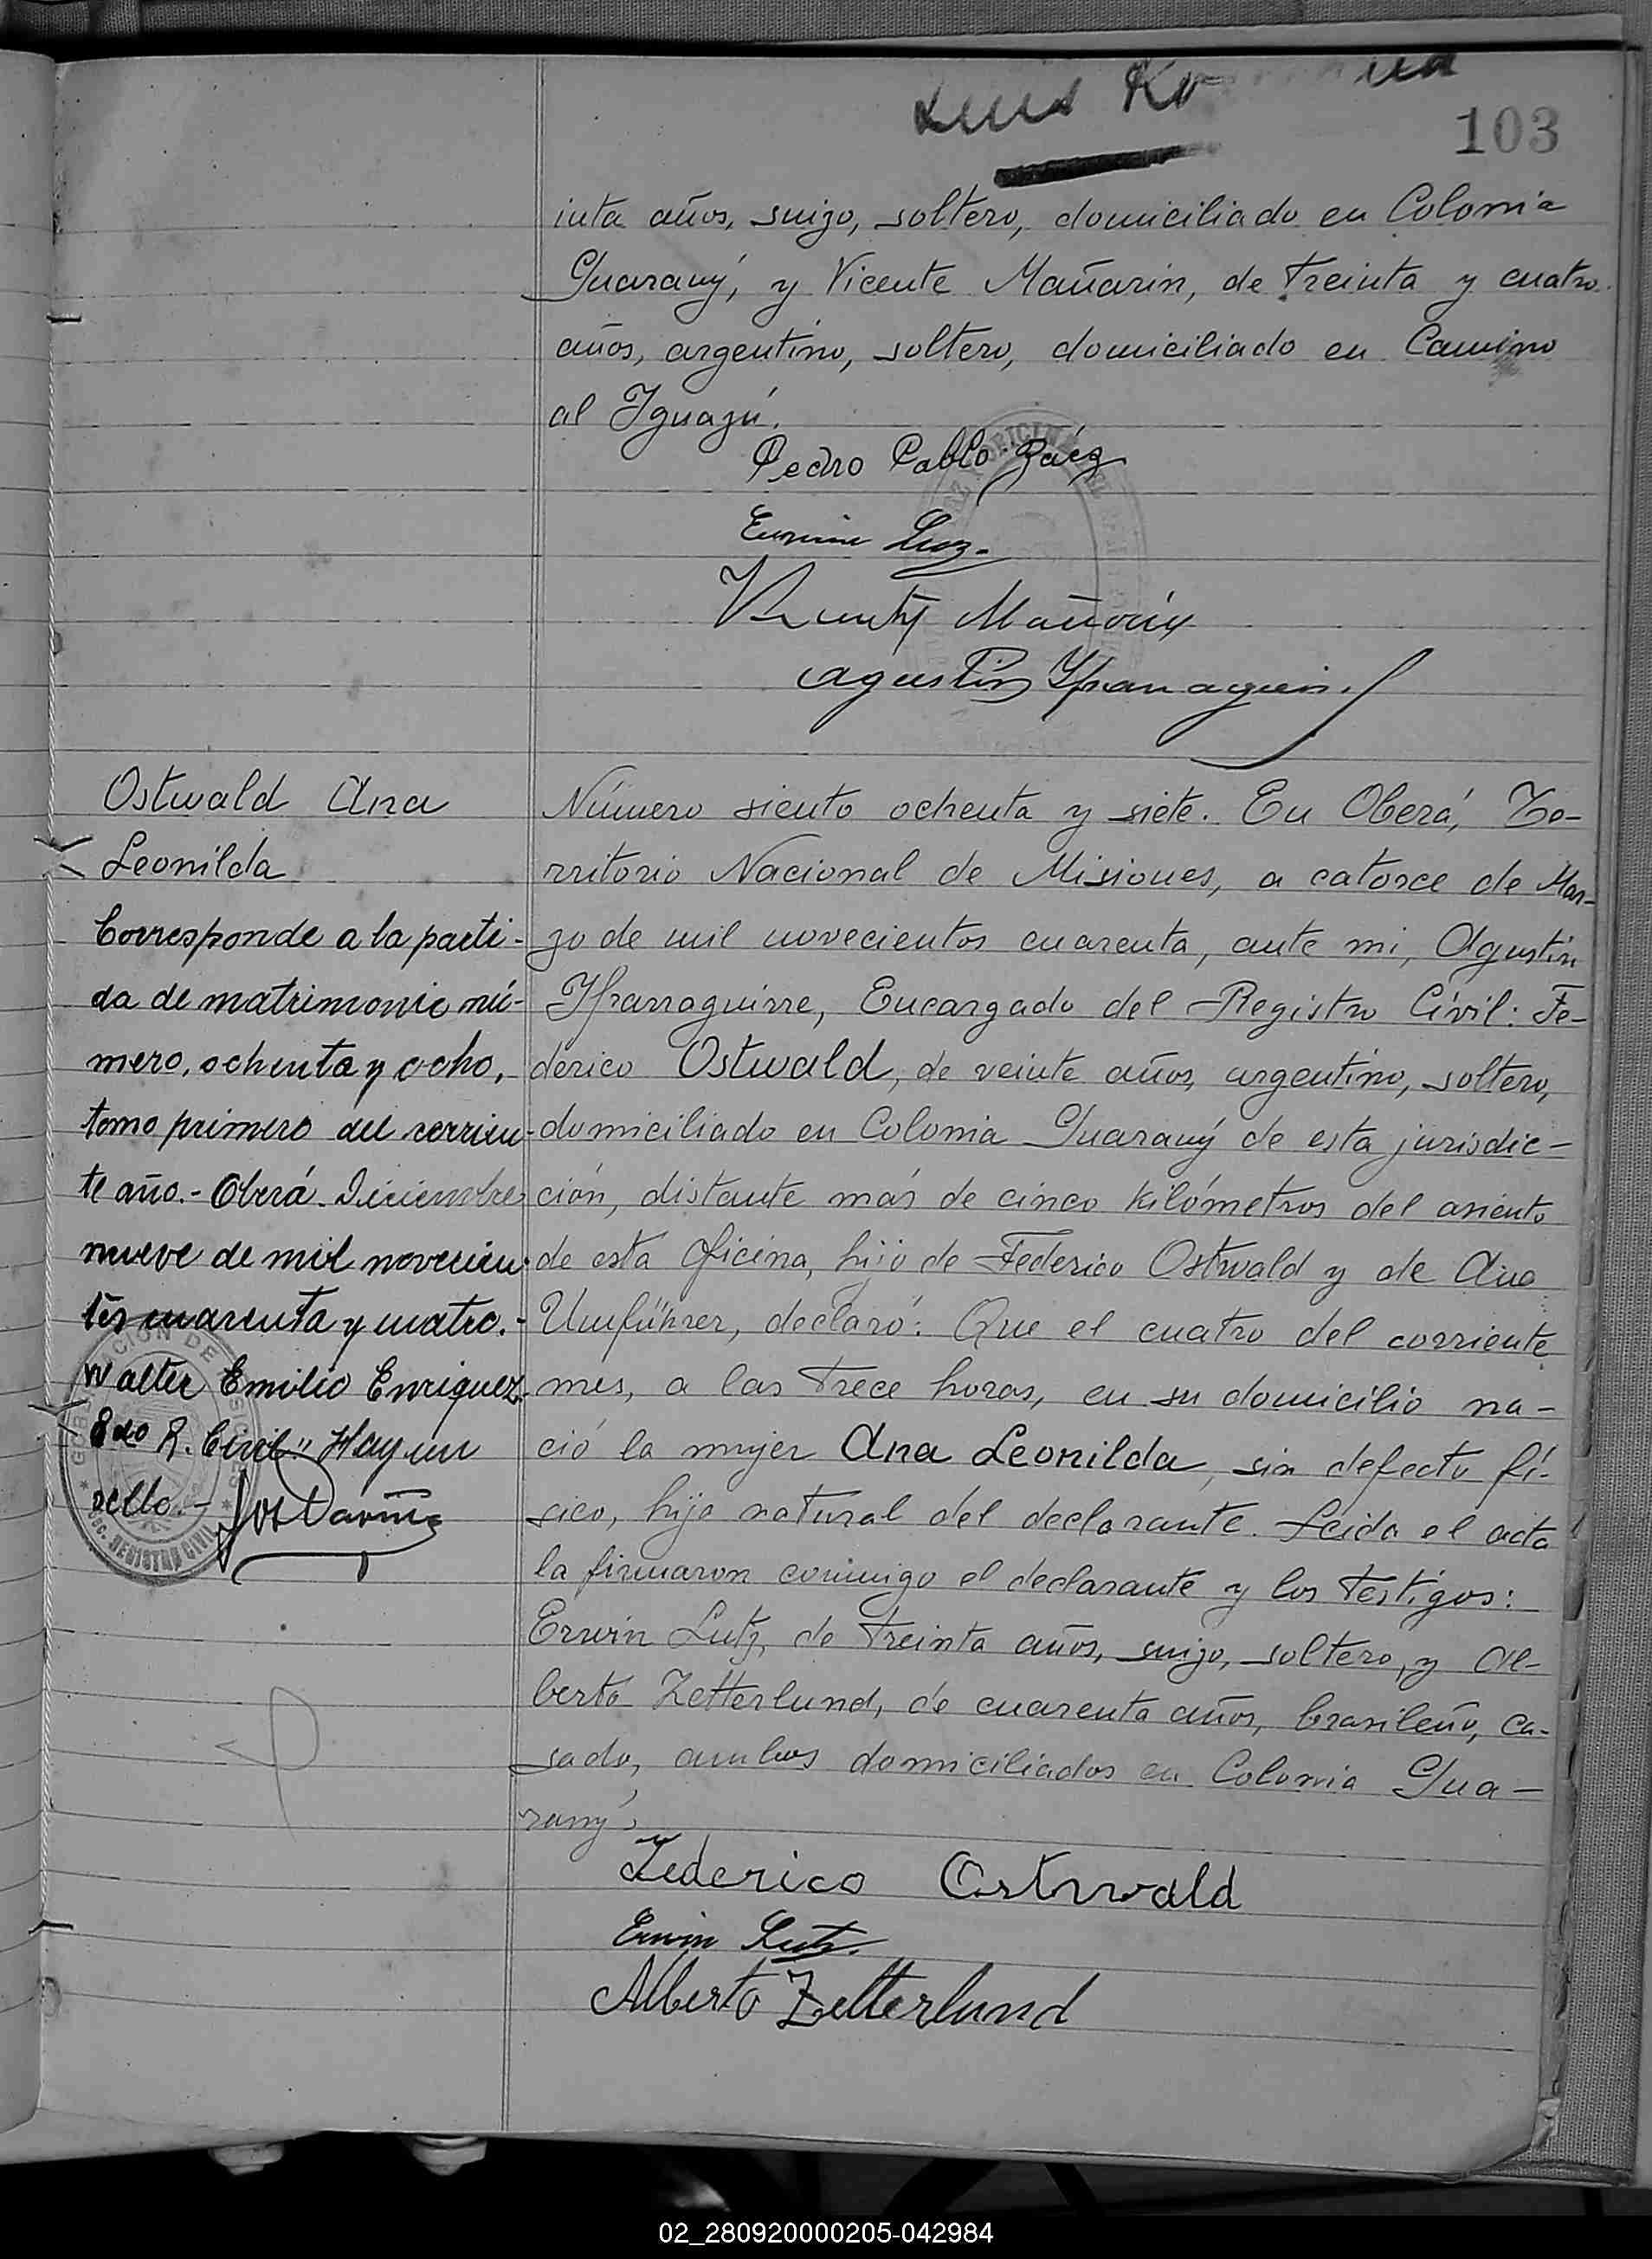 103
inta años, suizo, soltero, domiciliado en Colonia
Guarany, y Vicente Mañarin, de treinta y cuatro
años, argentino, soltero, domiciliado en Camino
al Iguazú.
Pedro Pablo Páez
Erwin Lutz.
Vicente Mañarin
Agustín Yfrarraguirre
Ostwald Ana
Leonilda
Corresponde a la parti-
da de matrimonio nú-
mero, ochenta y ocho,
tomo primero del corrien-
te año.- Oberá Diciembre
nueve de mil novecien-
tos cuarenta y cuatro.-
Walter Emilio Enriquez
Edo R. Civil" Hay un
sello.-
GOBERNACION DE MISIONES
SEC. REGISTRO CIVIL
Número siento ochenta y siete. En Oberá, Te-
rritorio Nacional de Misiones, a catorce de Mar-
zo de mil novecientos cuarenta, ante mi, Agustín
Yfrarraguirre, Encargado del Registro Civil: Fe-
derico Ostwald, de veinte años, argentino, soltero,
domiciliado en Colonia Guarany de esta jurisdic-
ción, distante más de cinco kilómetros del asiento
de esta oficina, hijo de Federico Ostwald y de Ana
Umführer, declaró: Que el cuatro del corriente
mes, a las trece horas, en su domicilio na-
ció la mujer Ana Leonilda, sin defecto fí-
sico, hija natural del declarante. Leida el acta
la firmaron conmigo el declarante y los testigos:
Erwin Lutz, de treinta años, suizo, soltero, y Al-
berto Zetterlund, de cuarenta años, brasileño, ca-
sado, ambos domiciliados en Colonia Gua-
rany.
Federico Ostwald
Erwin Lutz.
Alberto Zetterlund
02_280920000205-042984